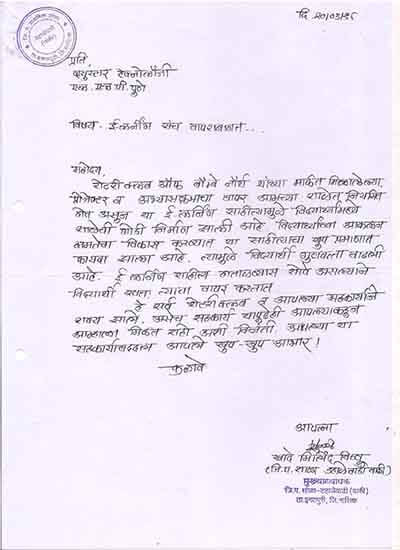 प्रति,
फ्युस्टार टेक्नोलॉजी
एल. एल. पी. पुणे
विषय - ई लर्निंग संच वापराबाबत...
महोदय,
रोटरी क्लब ऑफ बॉम्बे नॉर्थ यांच्या मार्फत मिळालेल्या
प्रोजेक्टर व अभ्यासक्रमाचा वापर आमच्या शाळेत नियमित
होत असून या ई लर्निंग साहित्यामुळे विद्यार्थ्यांमध्ये
शाळेची गोडी निर्माण झाली आहे. विद्यार्थ्यांच्या आकलन
क्षमतेचा विकास करण्यात या साहित्याचा खुप प्रमाणात
फायदा झाला आहे. त्यामुळे विद्यार्थी गुणवत्ता वाढली
आहे. ई लर्निंग साहित्य हाताळण्यास सोपे असल्याने
विद्यार्थी स्वतः त्याचा वापर करतात
हे सर्व रोटरी क्लब व आपल्या सहकार्याने
शक्य झाले. असेच सहकार्य यापुढेही आपल्याकडून
आम्हाला मिळत राहो अशी विनंती. आपल्या या
सहकार्याबद्दल आपले खुप-खुप आभार!
कळावे
आपला
मुख्याध्यापक
जि.प. शाळा-
ता. इगतपुरी, जि. नाशिक